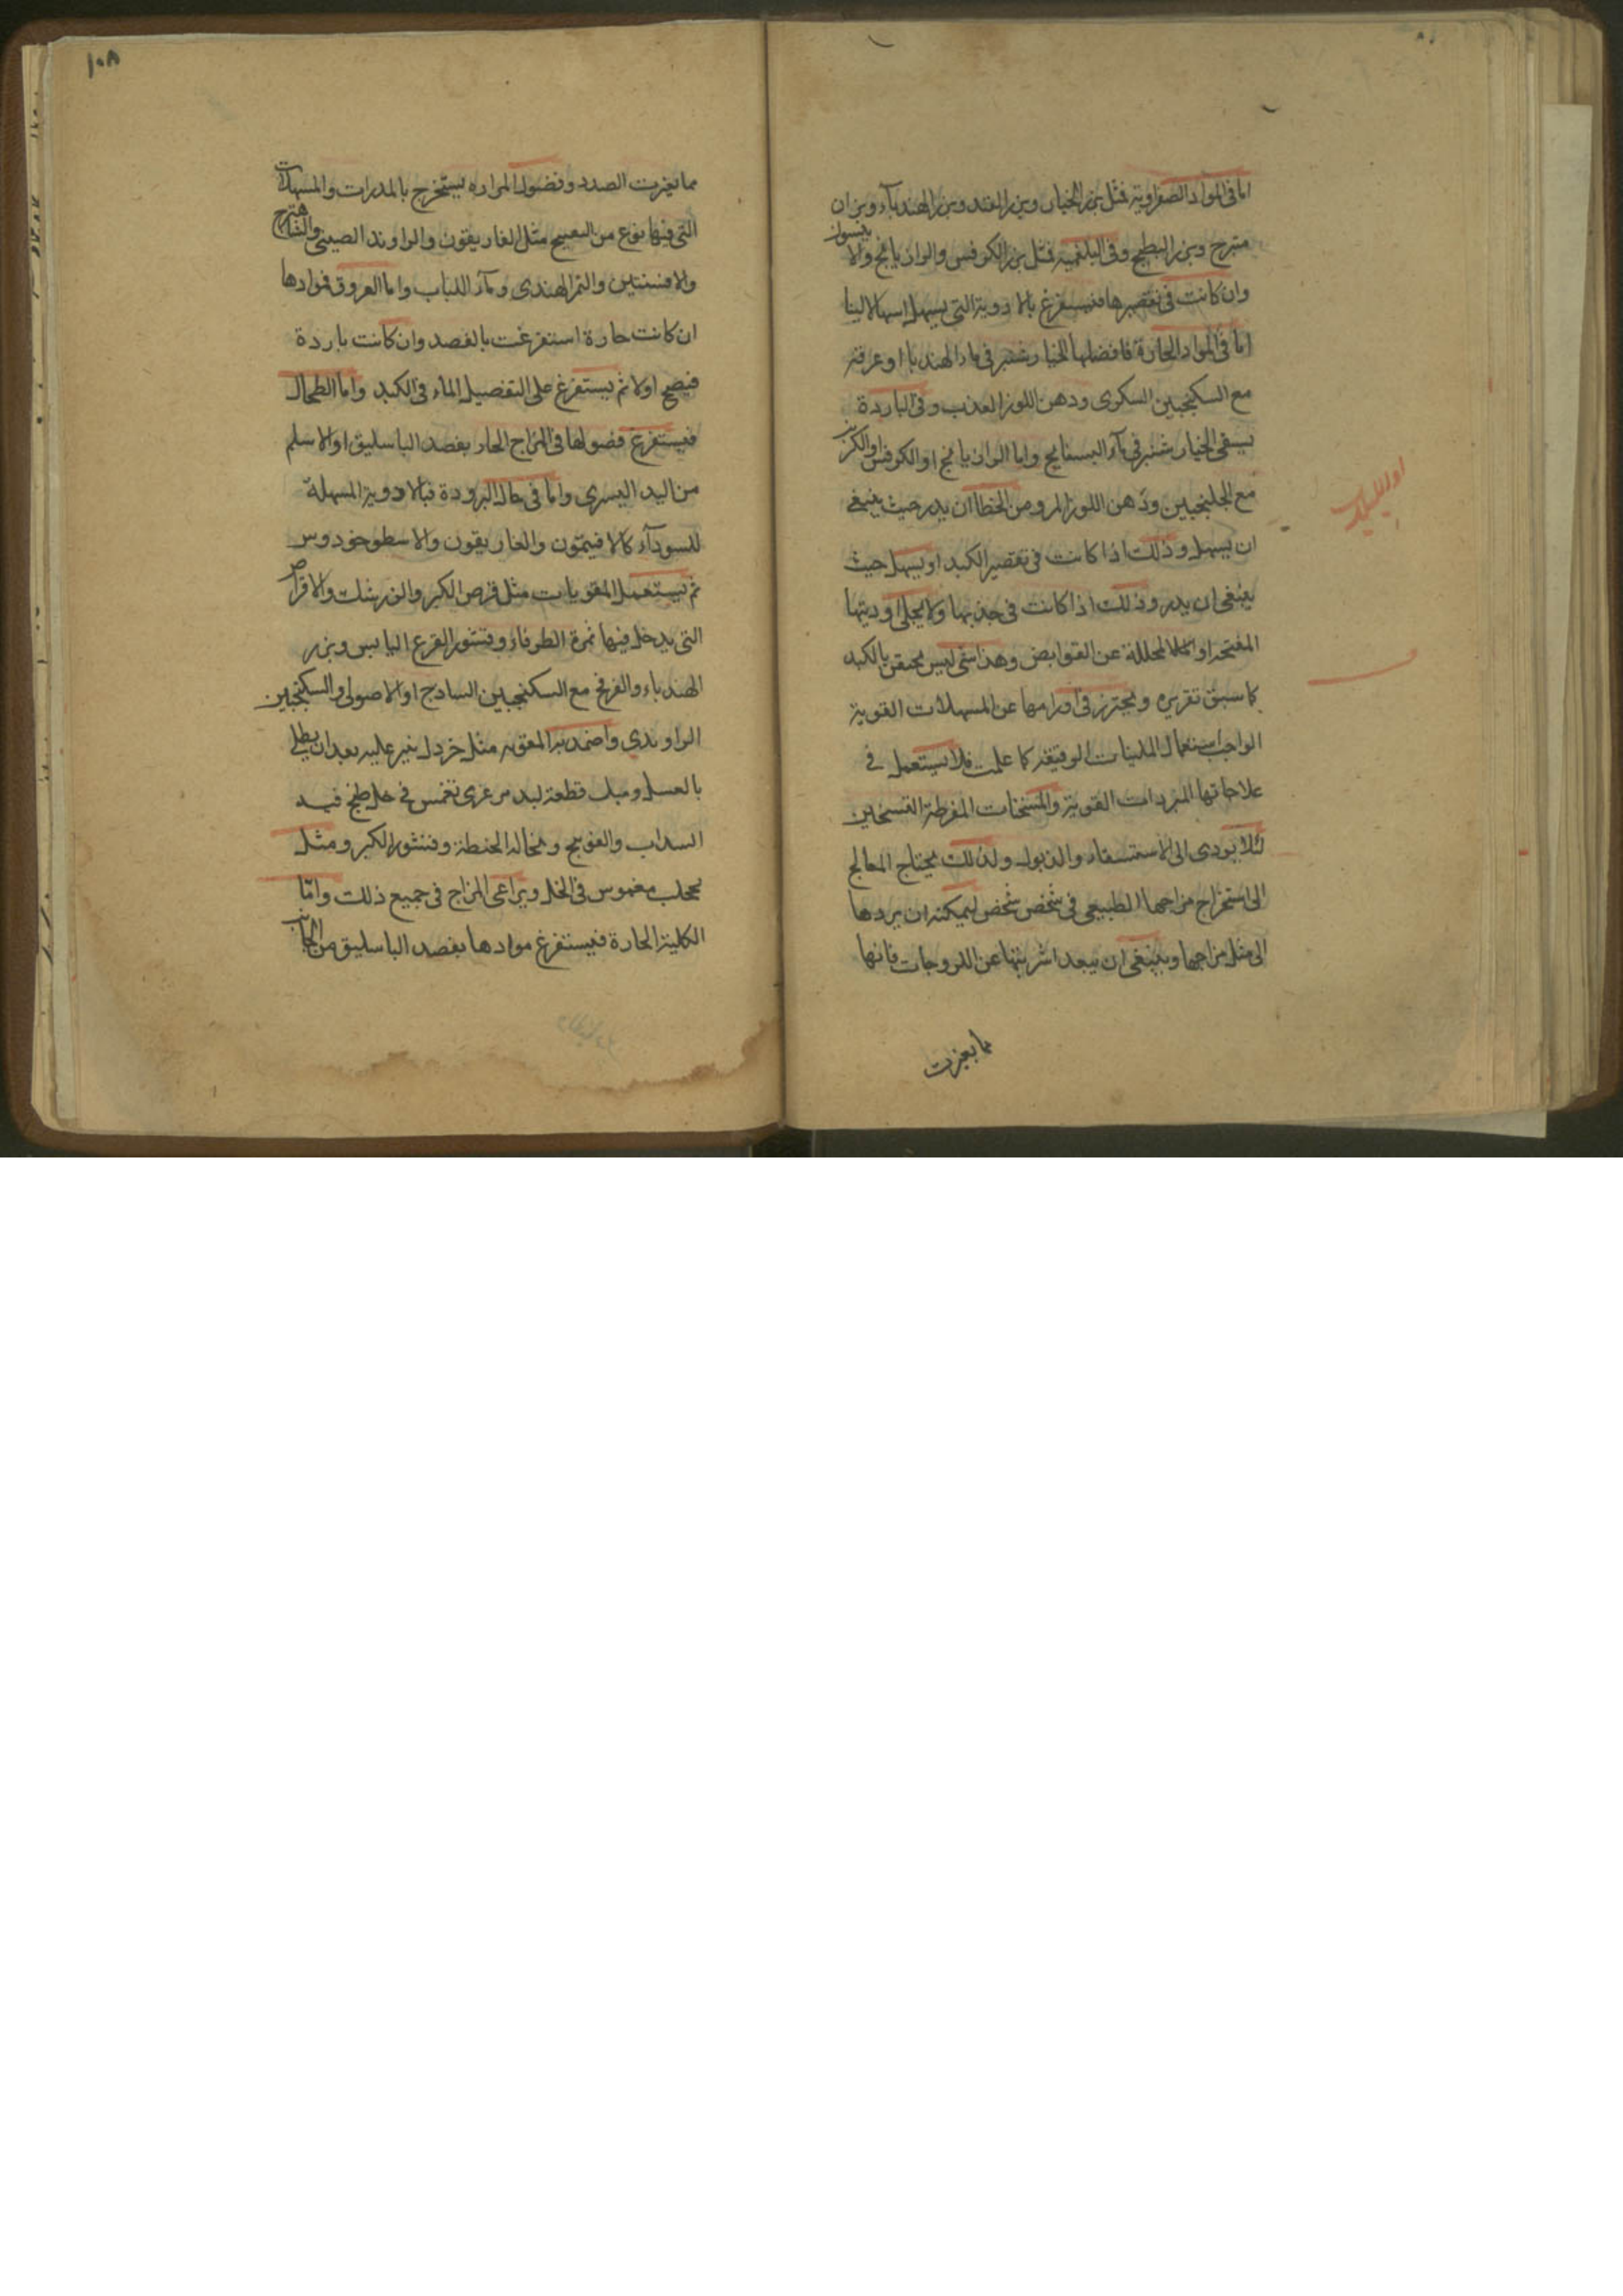 اما فى المواد الصفراوية فمثل بزر الخيار وبزر القند وبزر الهندبآء وبزران
متبرج وبزر البطيخ وفى البلغمية فمثل بزر الكرفس والرازيانج والا
نيسون
وان كانت فى تقصيرها فيستفرغ بالادوية التى يسهل اسهالا لينا
اما فى المواد الحارة فافضلها الخيار شنبر فى ماء الهندبا او عرقه
مع السكنجبين السكرى ودهن اللوز العذب وفى الباردة
يسقى الخيار شنبر فى مآء البسفايج واما الرازيانج او الكرفس او الكزبر
مع الجلنجبين ودهن اللوز المر ومن الخطا ان يدر حيث ينبغى
ان يسهل وذلك اذا كانت فى تقصير الكبد او يسهل حيث
ينبغى ان يدر وذلك اذا كانت فى حدبها ولا يخلى اوديتها
المفتحه او المحللة عن القوابض وهذا شى ليس مختص بالكبد
كما سبق تقريره ويحترز فى اورامها عن المسهلات القوية
الواجب استعمال الملينات الرقيقه كما علمت فلا يستعمل فى
علاجاتها المبردات القوية والمسخنات المفرطة التسخين
لئلا يودى الى الاستسقاء والذبول ولذلك يحتاج المعالج
الى استخراج مزاجها الطبيعى فى شخص شخص ليمكنه ان يردها
الى مثل مزاجها وينبغى ان يبعد اشربتها عن اللزوجات فانها
مما يغزت
١٠٨
مما يغزت الصدد وفضول المراره يستخرج بالمدرات والمسهلات
التى فيها نوع من التفتيح مثل الغاريقون والراوند الصينى والشاهترج
والافسنتين والتمر الهندى ومآء اللباب واما العروق فموادها
ان كانت حارة استفرغت بالفصد وان كانت باردة
فينضج اولا ثم يستفرغ على التفصيل الماء فى الكبد واما الطحال
فيستفرغ فضولها فى المزاج الحار بفصد الباسليق او الاسلم
من اليد اليسرى واما فى حال البرودة فبالادوية المسهلة
للسودآء كالافيتمون والغاريقون والاسطوخودوس
ثم يستعمل المقويات مثل قرص الكبر والفرشك والاقراص
التى يدخل فيها ثمرة الطرفاء وقشور القرع اليابس وبزر
الهندباء والفرفخ مع السكنجبين السادج او الاصولى والسكنجبين
الراوندى واضمدته المقويه مثل خردل نير عليه بعد ان يطلى
بالعسل ومثل قطعة لبد مرعزى تغمس فى خل طبخ فيه
السداب والفوتنج ونخالة الحنطة وقشور الكبر ومثل
طحلب مغموس فى الخل ويراعى المزاج فى جميع ذلك وامّا
الكلية الحارة فيستفرغ موادها بفصد الباسليق من الجانب